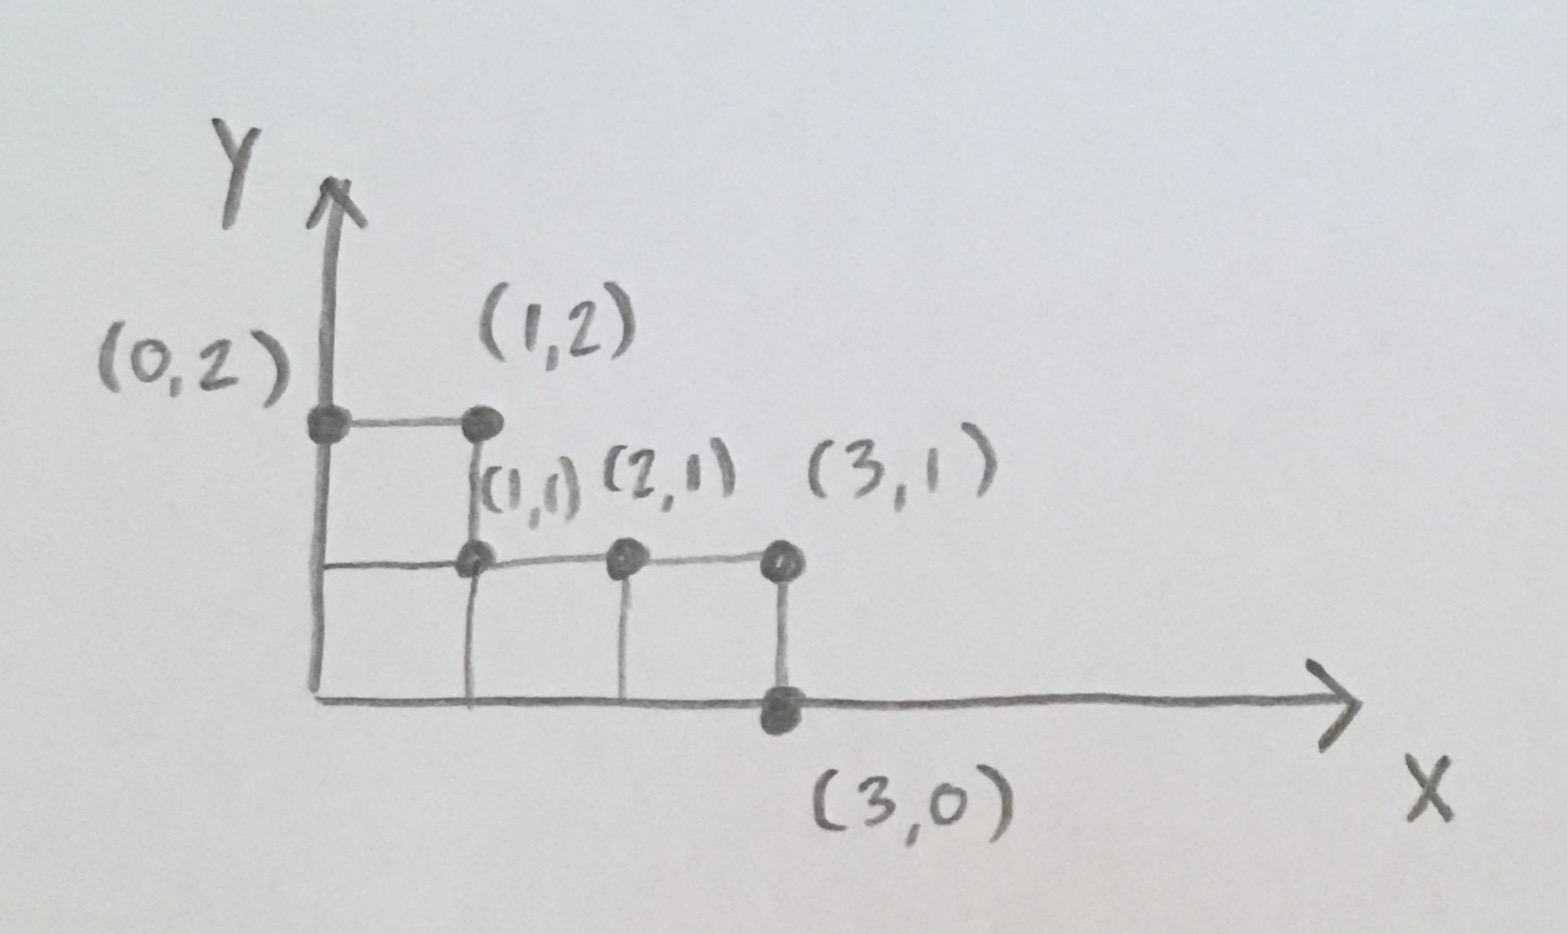 Y
(1,2)
(0,2)
(1,1) (2,1) (3,1)
(3,0)
X